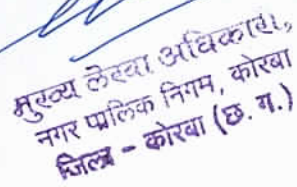 मुख्य लेखा अधिकारी,
नगर पालिक निगम, कोरबा
जिला - कोरबा (छ. ग.)